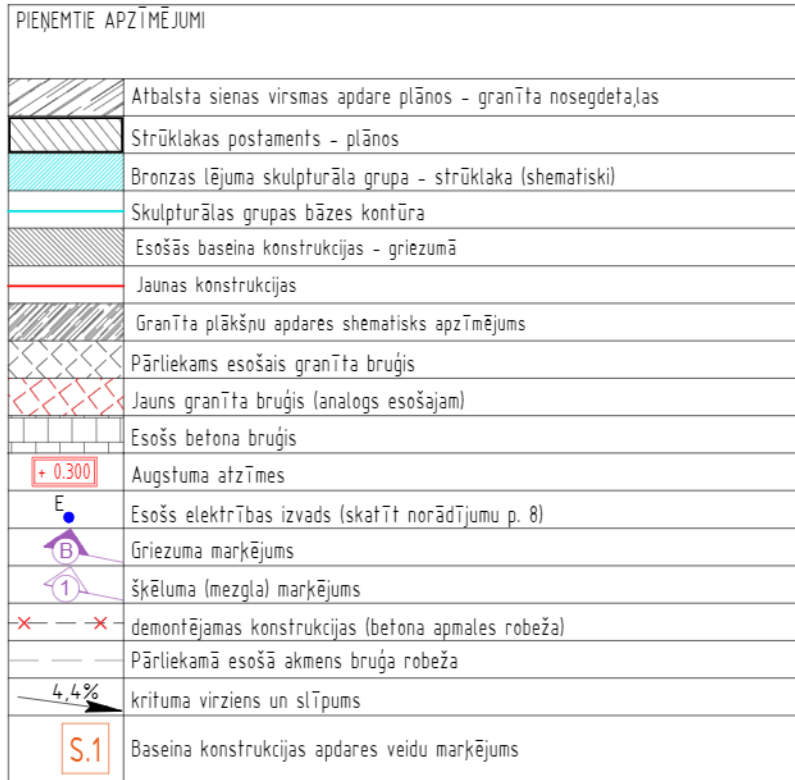 PIEŅEMTIE APZĪMĒJUMI
Atbalsta sienas virsmas apdare plānos - granīta nosegdetaļas
Strūklakas postaments - plānos
Bronzas lējuma skulpturāla grupa - strūklaka (shematiski)
Skulpturālas grupas bāzes kontūra
Esošās baseina konstrukcijas - griezumā
Jaunas konstrukcijas
Granīta plākšņu apdares shematisks apzīmējums
Pārliekams esošais granīta bruģis
Jauns granīta bruģis (analogs esošajam)
Esošs betona bruģis
+ 0.300 Augstuma atzīmes
E Esošs elektrības izvads (skatīt norādījumu p. 8)
B Griezuma marķējums
1 šķēluma (mezgla) marķējums
demontējamas konstrukcijas (betona apmales robeža)
Pārliekamā esošā akmens bruģa robeža
4,4% krituma virziens un slīpums
S.1 Baseina konstrukcijas apdares veidu marķējums